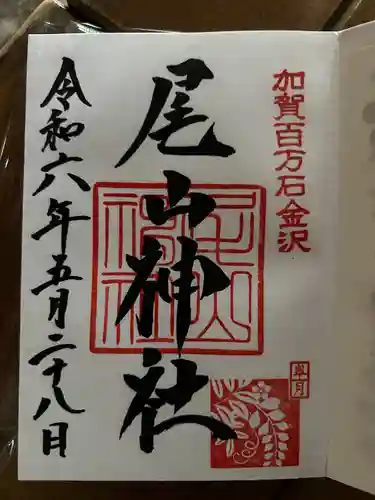 加賀百万石金沢
尾山神社
尾山神社
令和六年五月二十八日
皐月